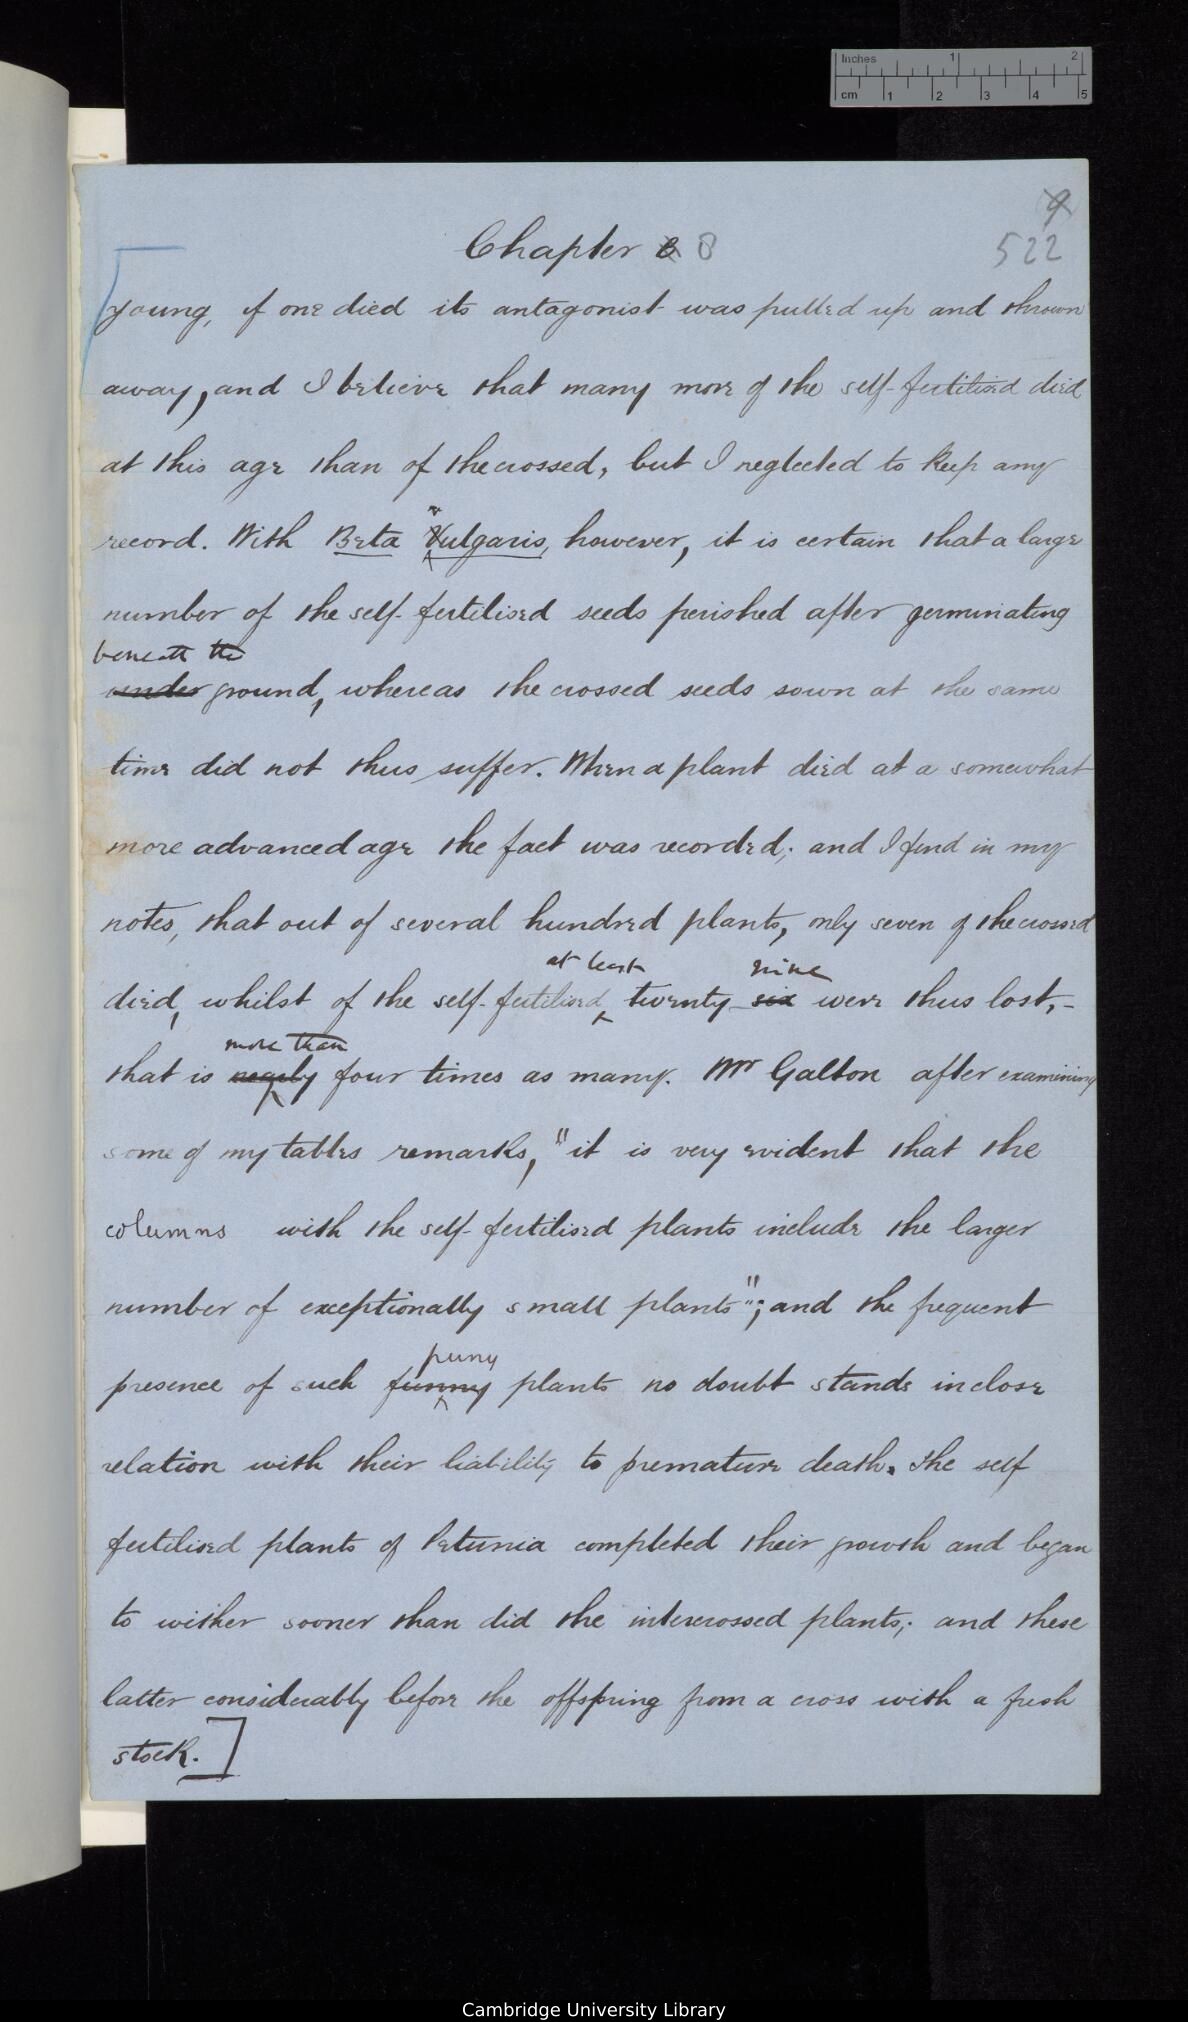 Inches 1 2
cm 1 2 3 4 5
9
Chapter 6 8
522
young, if one died its antagonist was pulled up and thrown
away, and I believe that many more of the self-fertilised died
at this age than of the crossed, but I neglected to keep any
record. With Beta Vulgaris, however, it is certain that a large
number of the self-fertilised seeds perished after germinating
beneath the
under ground, whereas the crossed seeds sown at the same
time did not thus suffer. When a plant died at a somewhat
more advanced age the fact was recorded; and I find in my
notes, that out of several hundred plants, only seven of the crossed
at least nine
died, whilst of the self-fertilised twenty-six were thus lost,-
more than
that is nearly four times as many. Mr Galton after examining
some of my tables remarks, "it is very evident that the
columns with the self-fertilised plants include the larger
number of exceptionally small plants"; and the frequent
puny
presence of such funny plants no doubt stands in close
relation with their liability to premature death. The self
fertilised plants of Petunia completed their growth and began
to wither sooner than did the intercrossed plants; and these
latter considerably before the offspring from a cross with a fresh
stock.]
Cambridge University Library